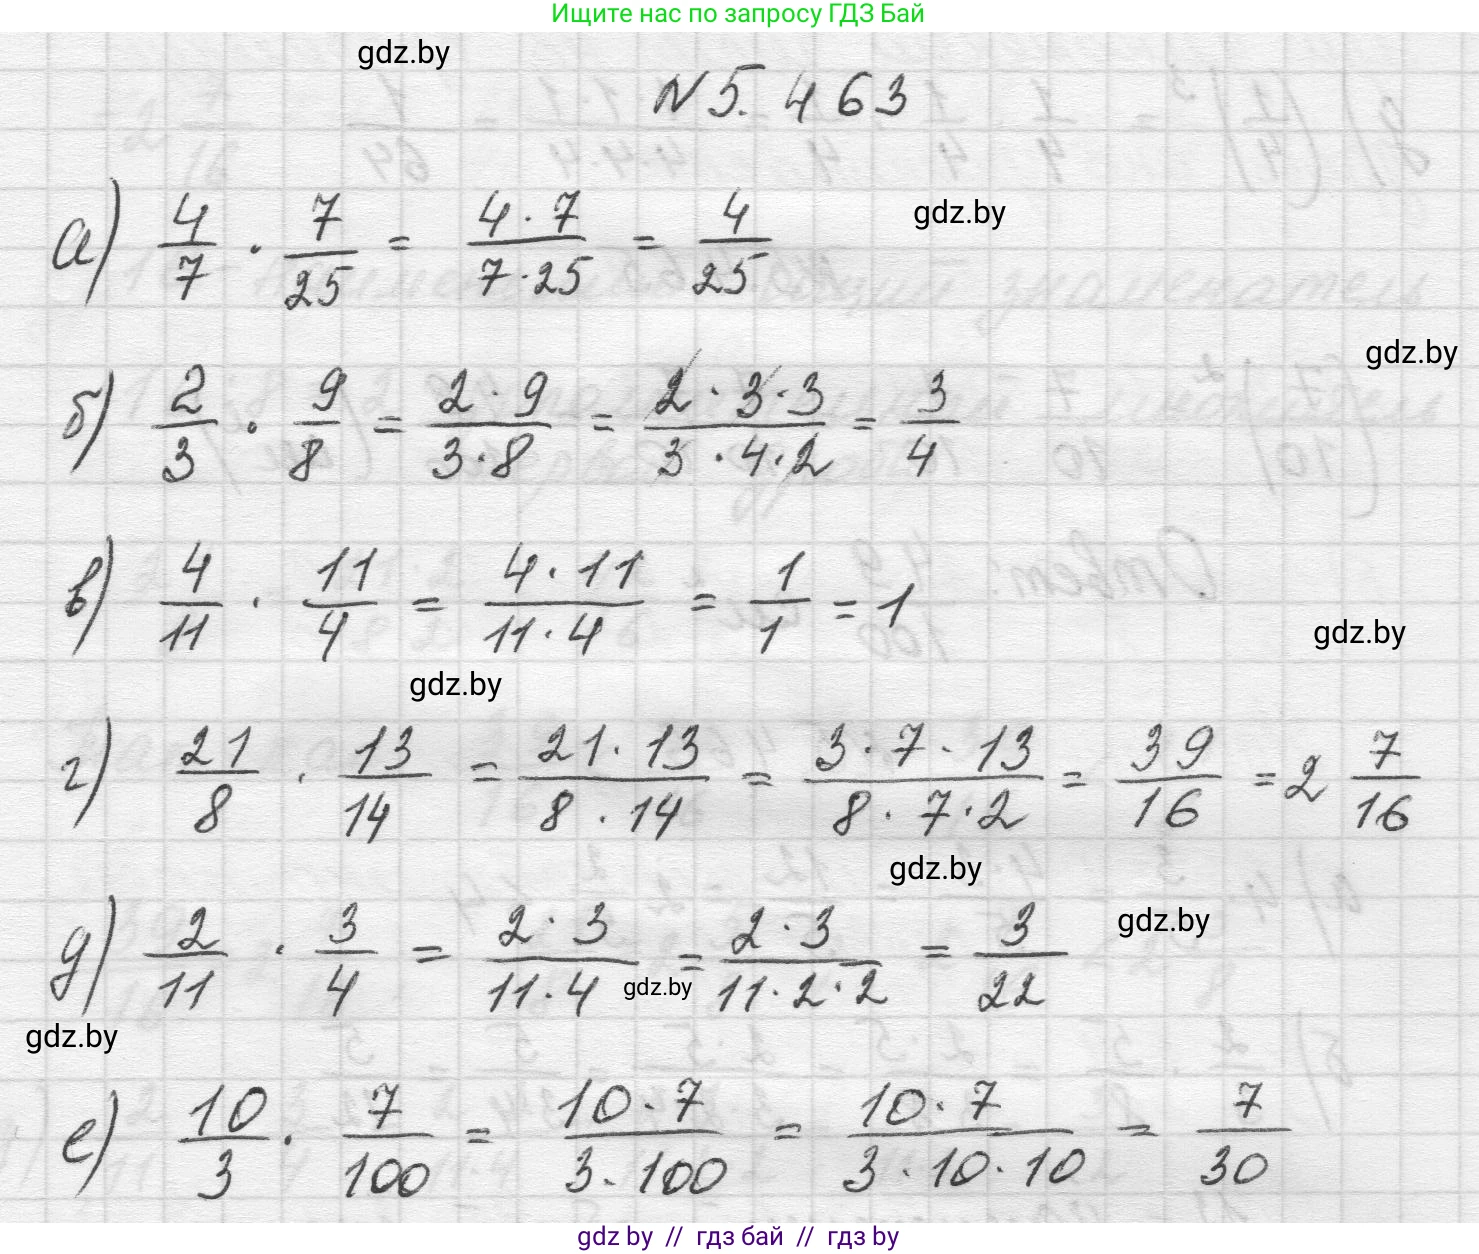 Ищите нас по запросу ГДЗ Бай
gdz.by
N 5. 463
а) 4/7 · 7/25 = 4 · 7/7 · 25 = 4/25
gdz.by
gdz.by
б) 2/3 · 9/8 = 2 · 9/3 · 8 = 2 · 3 · 3/3 · 4 · 2 = 3/4
в) 4/11 · 11/4 = 4 · 11/11 · 4 = 1/1 = 1
gdz.by
gdz.by
г) 21/8 · 13/14 = 21 · 13/8 · 14 = 3 · 7 · 13/8 · 7 · 2 = 39/16 = 2 7/16
gdz.by
gdz.by
д) 2/11 · 3/4 = 2 · 3/11 · 4 = 2 · 3/11 · 2 · 2 = 3/22
gdz.by
gdz.by
е) 10/3 · 7/100 = 10 · 7/3 · 100 = 10 · 7/3 · 10 · 10 = 7/30
gdz by // гдз бай // гдз by